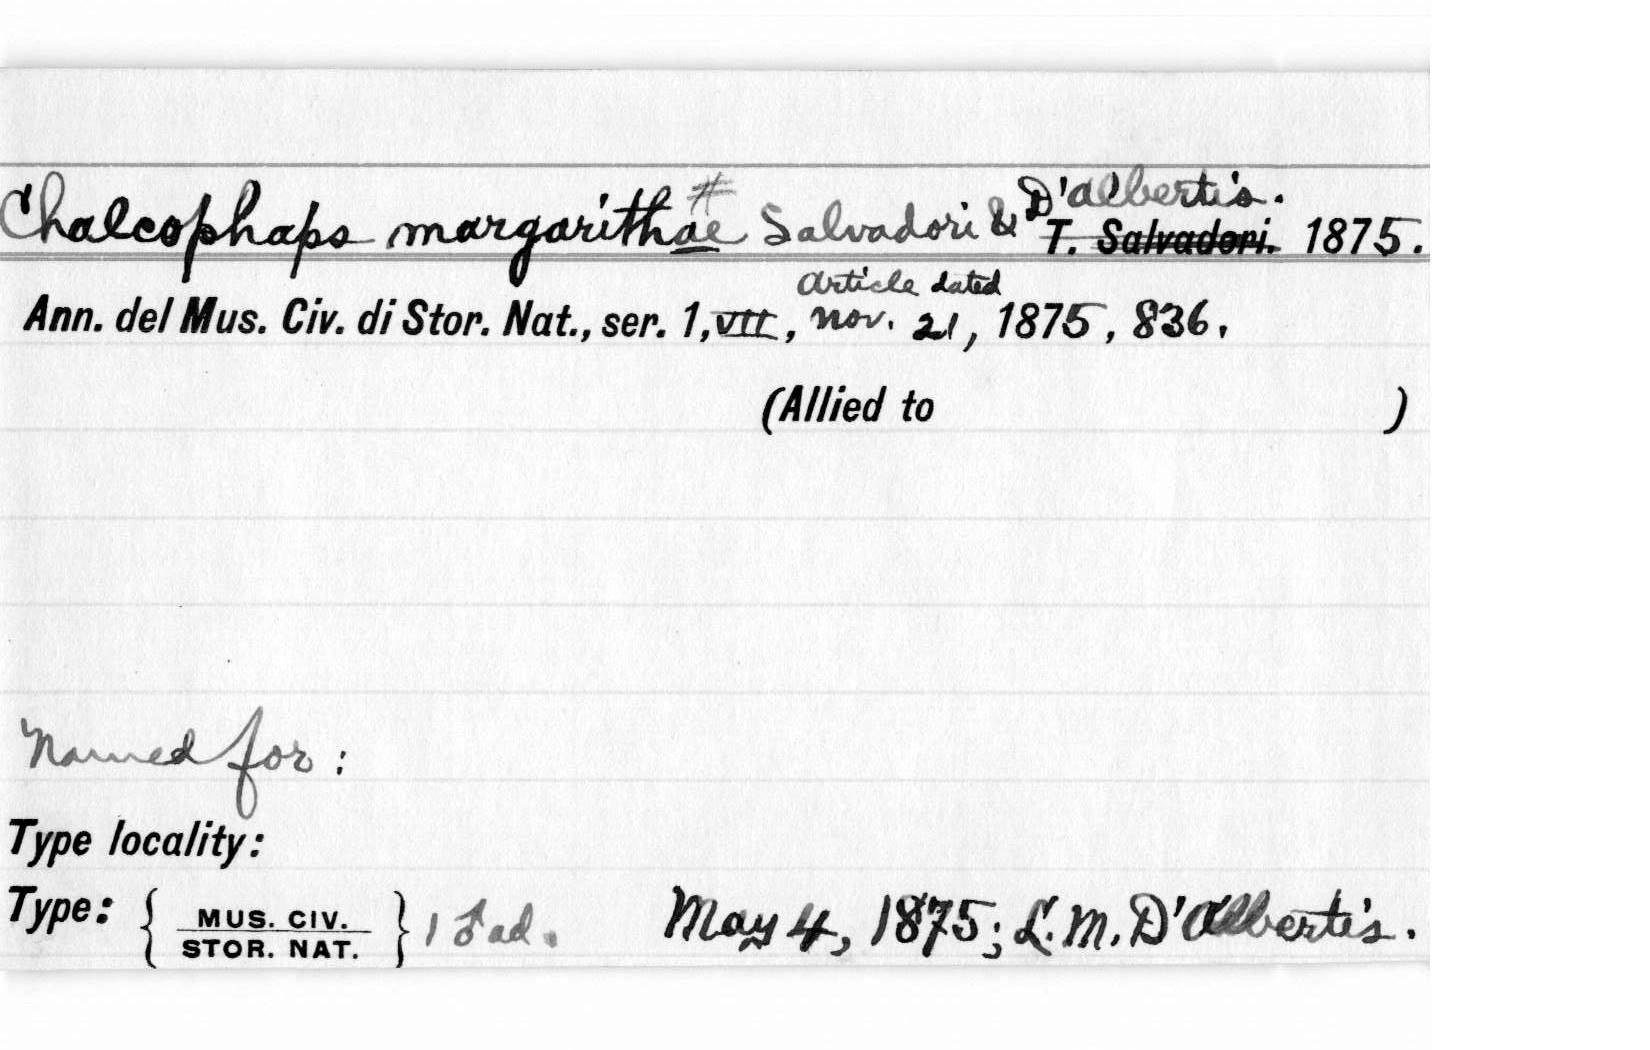 Chalcophaps margarithae # Salvadori & D'Albertis. T. Salvadori. 1875.
Article dated
Ann. del Mus. Civ. di Stor. Nat., ser. 1, VII, Nov. 21, 1875, 836.
(Allied to )
Named for:
Type locality:
Type: { MUS. CIV. STOR. NAT. } 1 ♂ ad. May 4, 1875; L. M. D'Albertis.